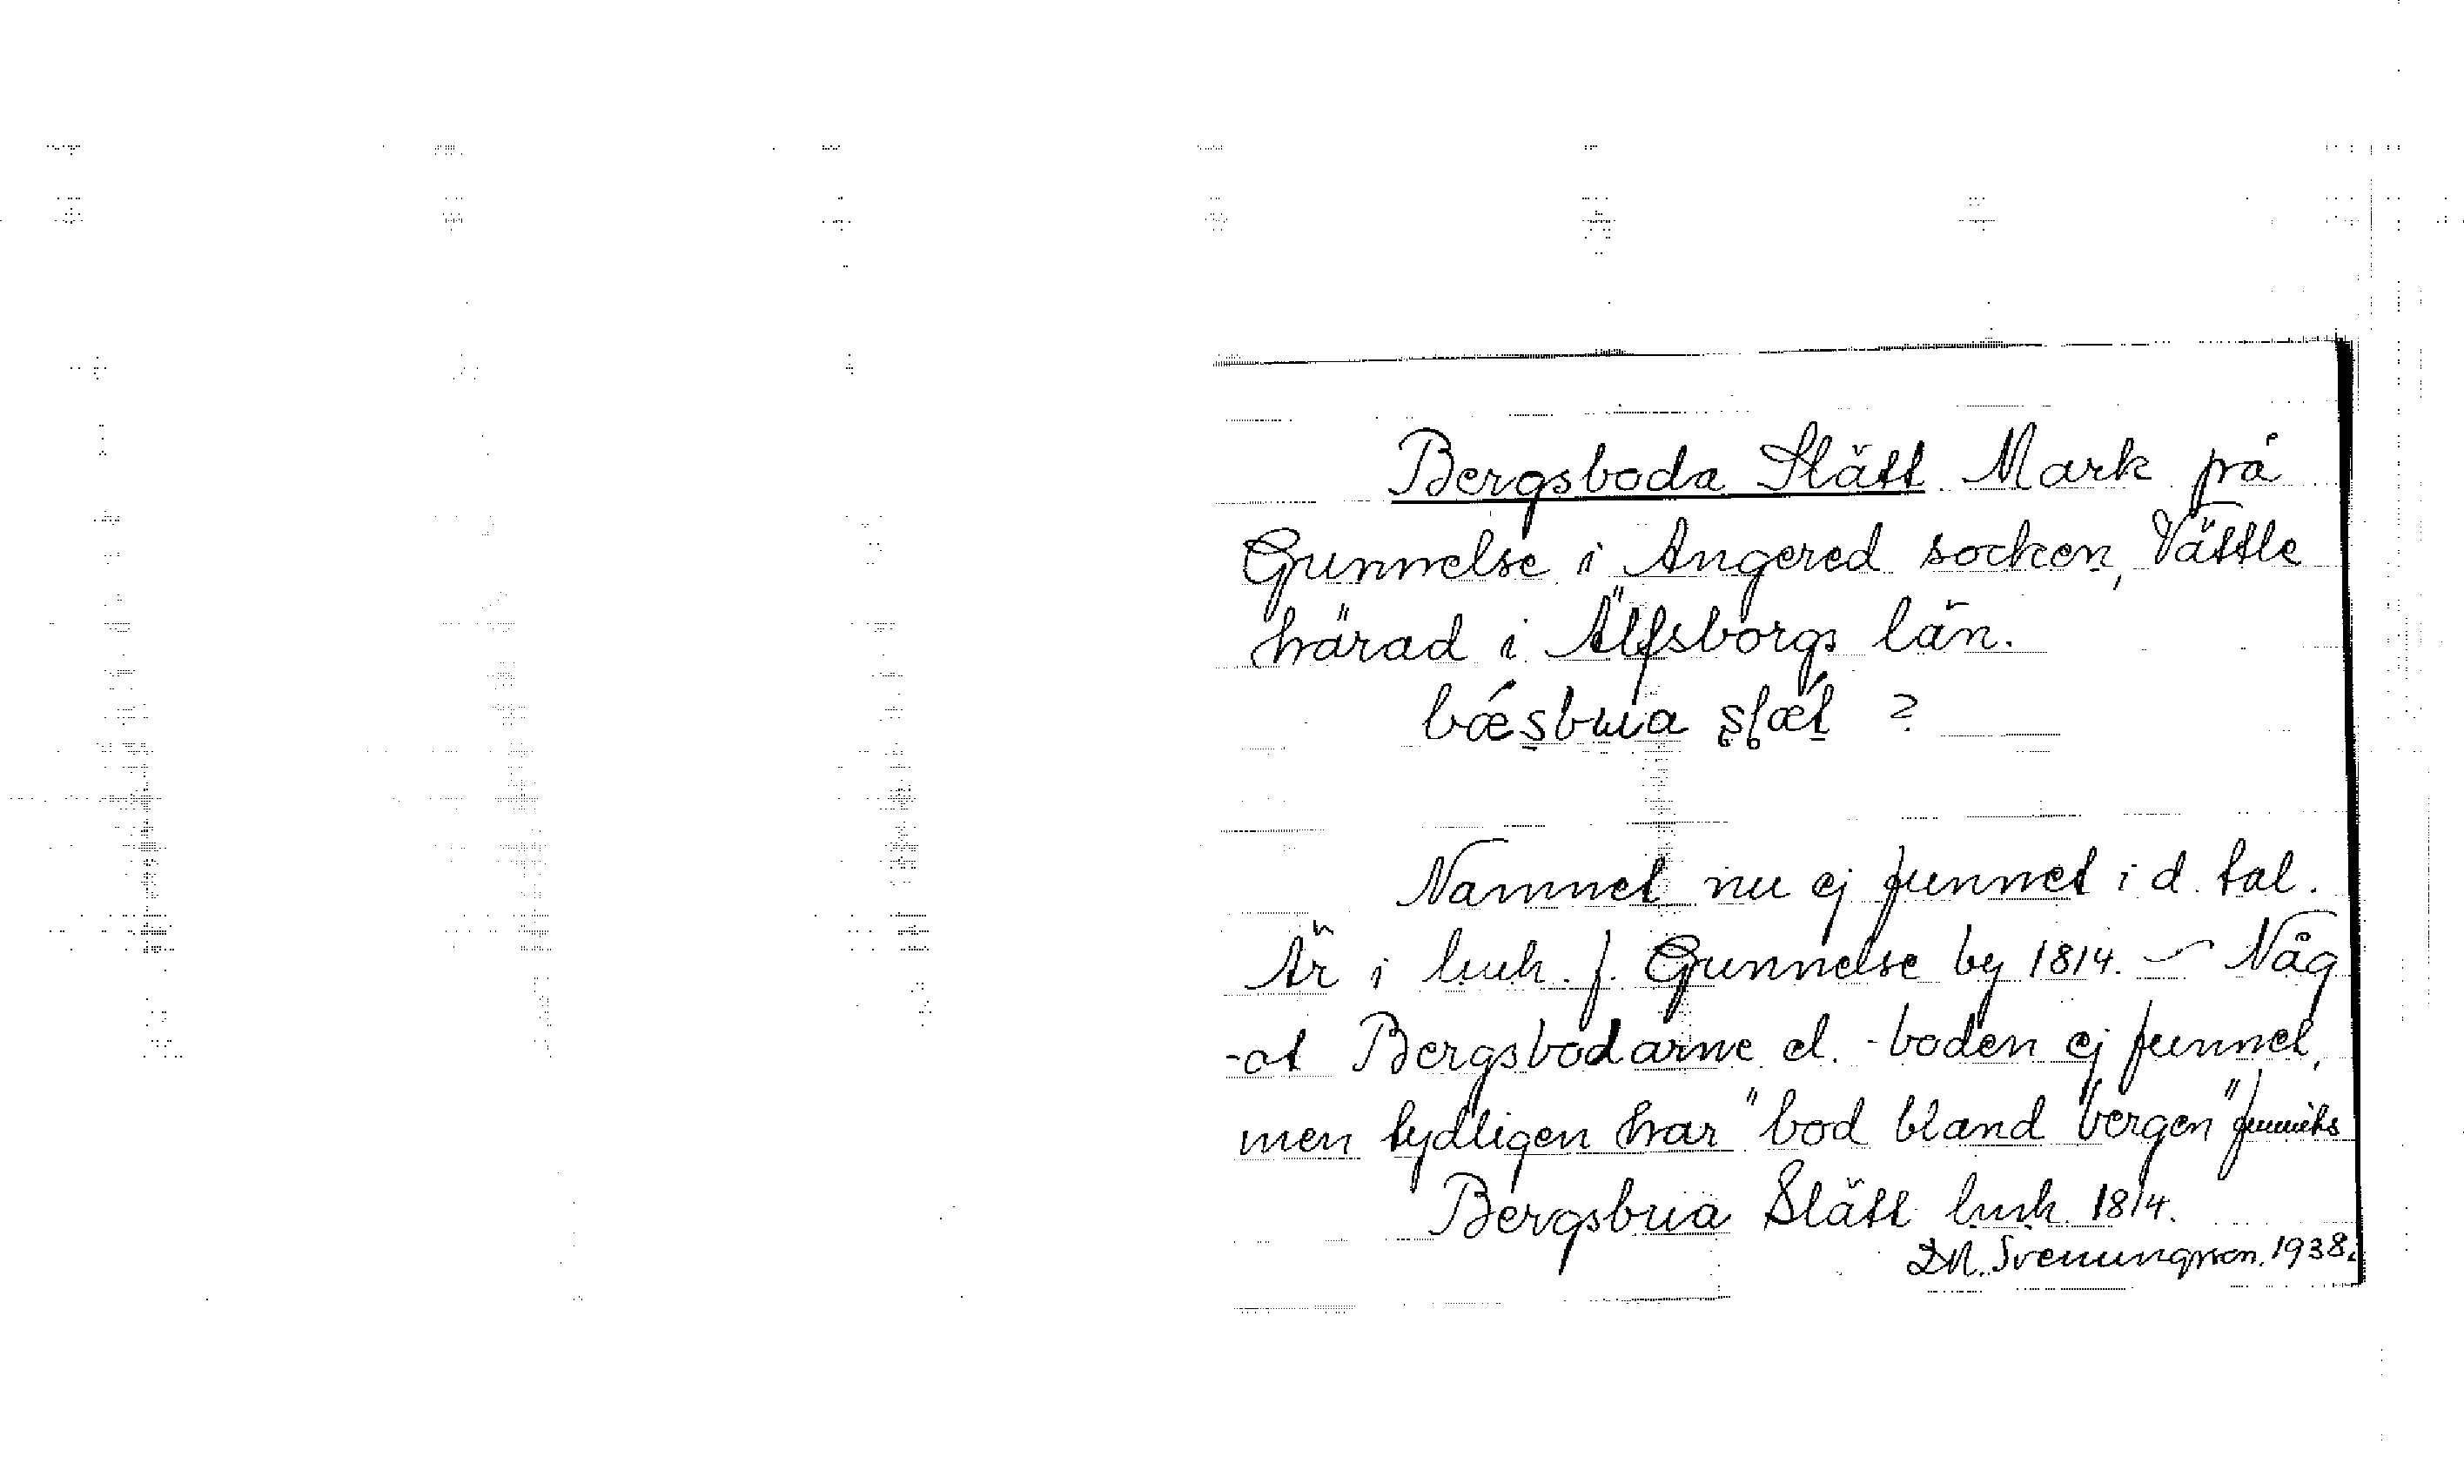 Bergsboda Slätt Mark på
Gunnelse i Angered socken, Vättle
härad i Älfsborgs län.
bǽsbua slǽt ?
Namnet nu ej funnet i d. tal.
Är i lmk. f. Gunnelse by 1814. – Någ
-ot Bergsbodarne el. -boden ej funnet,
men tydligen har "bod bland bergen" funnits
Bergsbua Slätt lmk 1814.
D.M. Svenungsson. 1938.